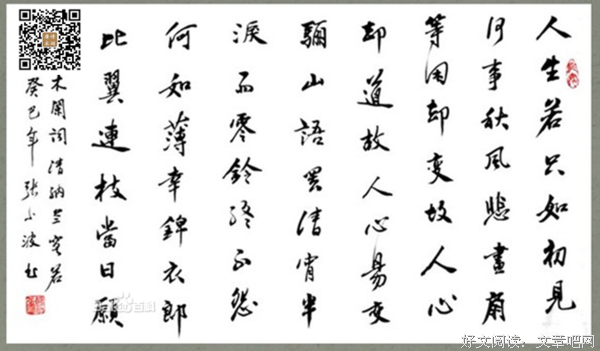 人生若只如初見
何事秋風悲畫扇
等闲却变故人心
却道故人心易变
驪山語罢清宵半
淚雨零鈴終不怨
何如薄幸錦衣郎
比翼連枝當日願
木闌词清納兰容若
癸巳年张小波书
百科
好文阅读：文章吧网